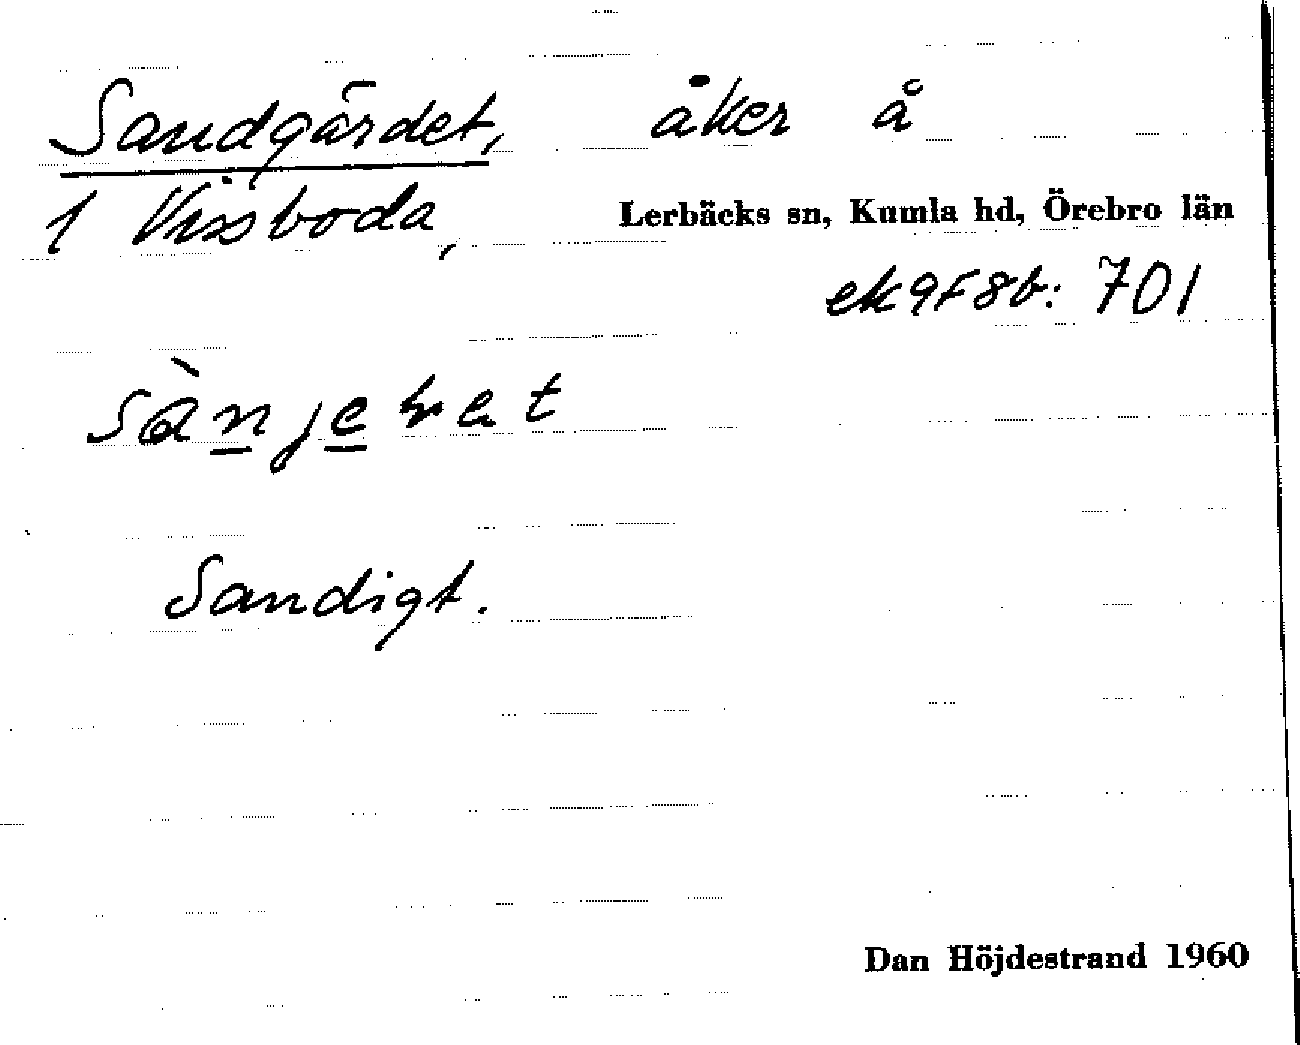 Sandgärdet, åker å
1 Vissboda, Lerbäcks sn, Kumla hd, Örebro län
ek 9F8b: 701
Sandigt.
Dan Höjdestrand 1960